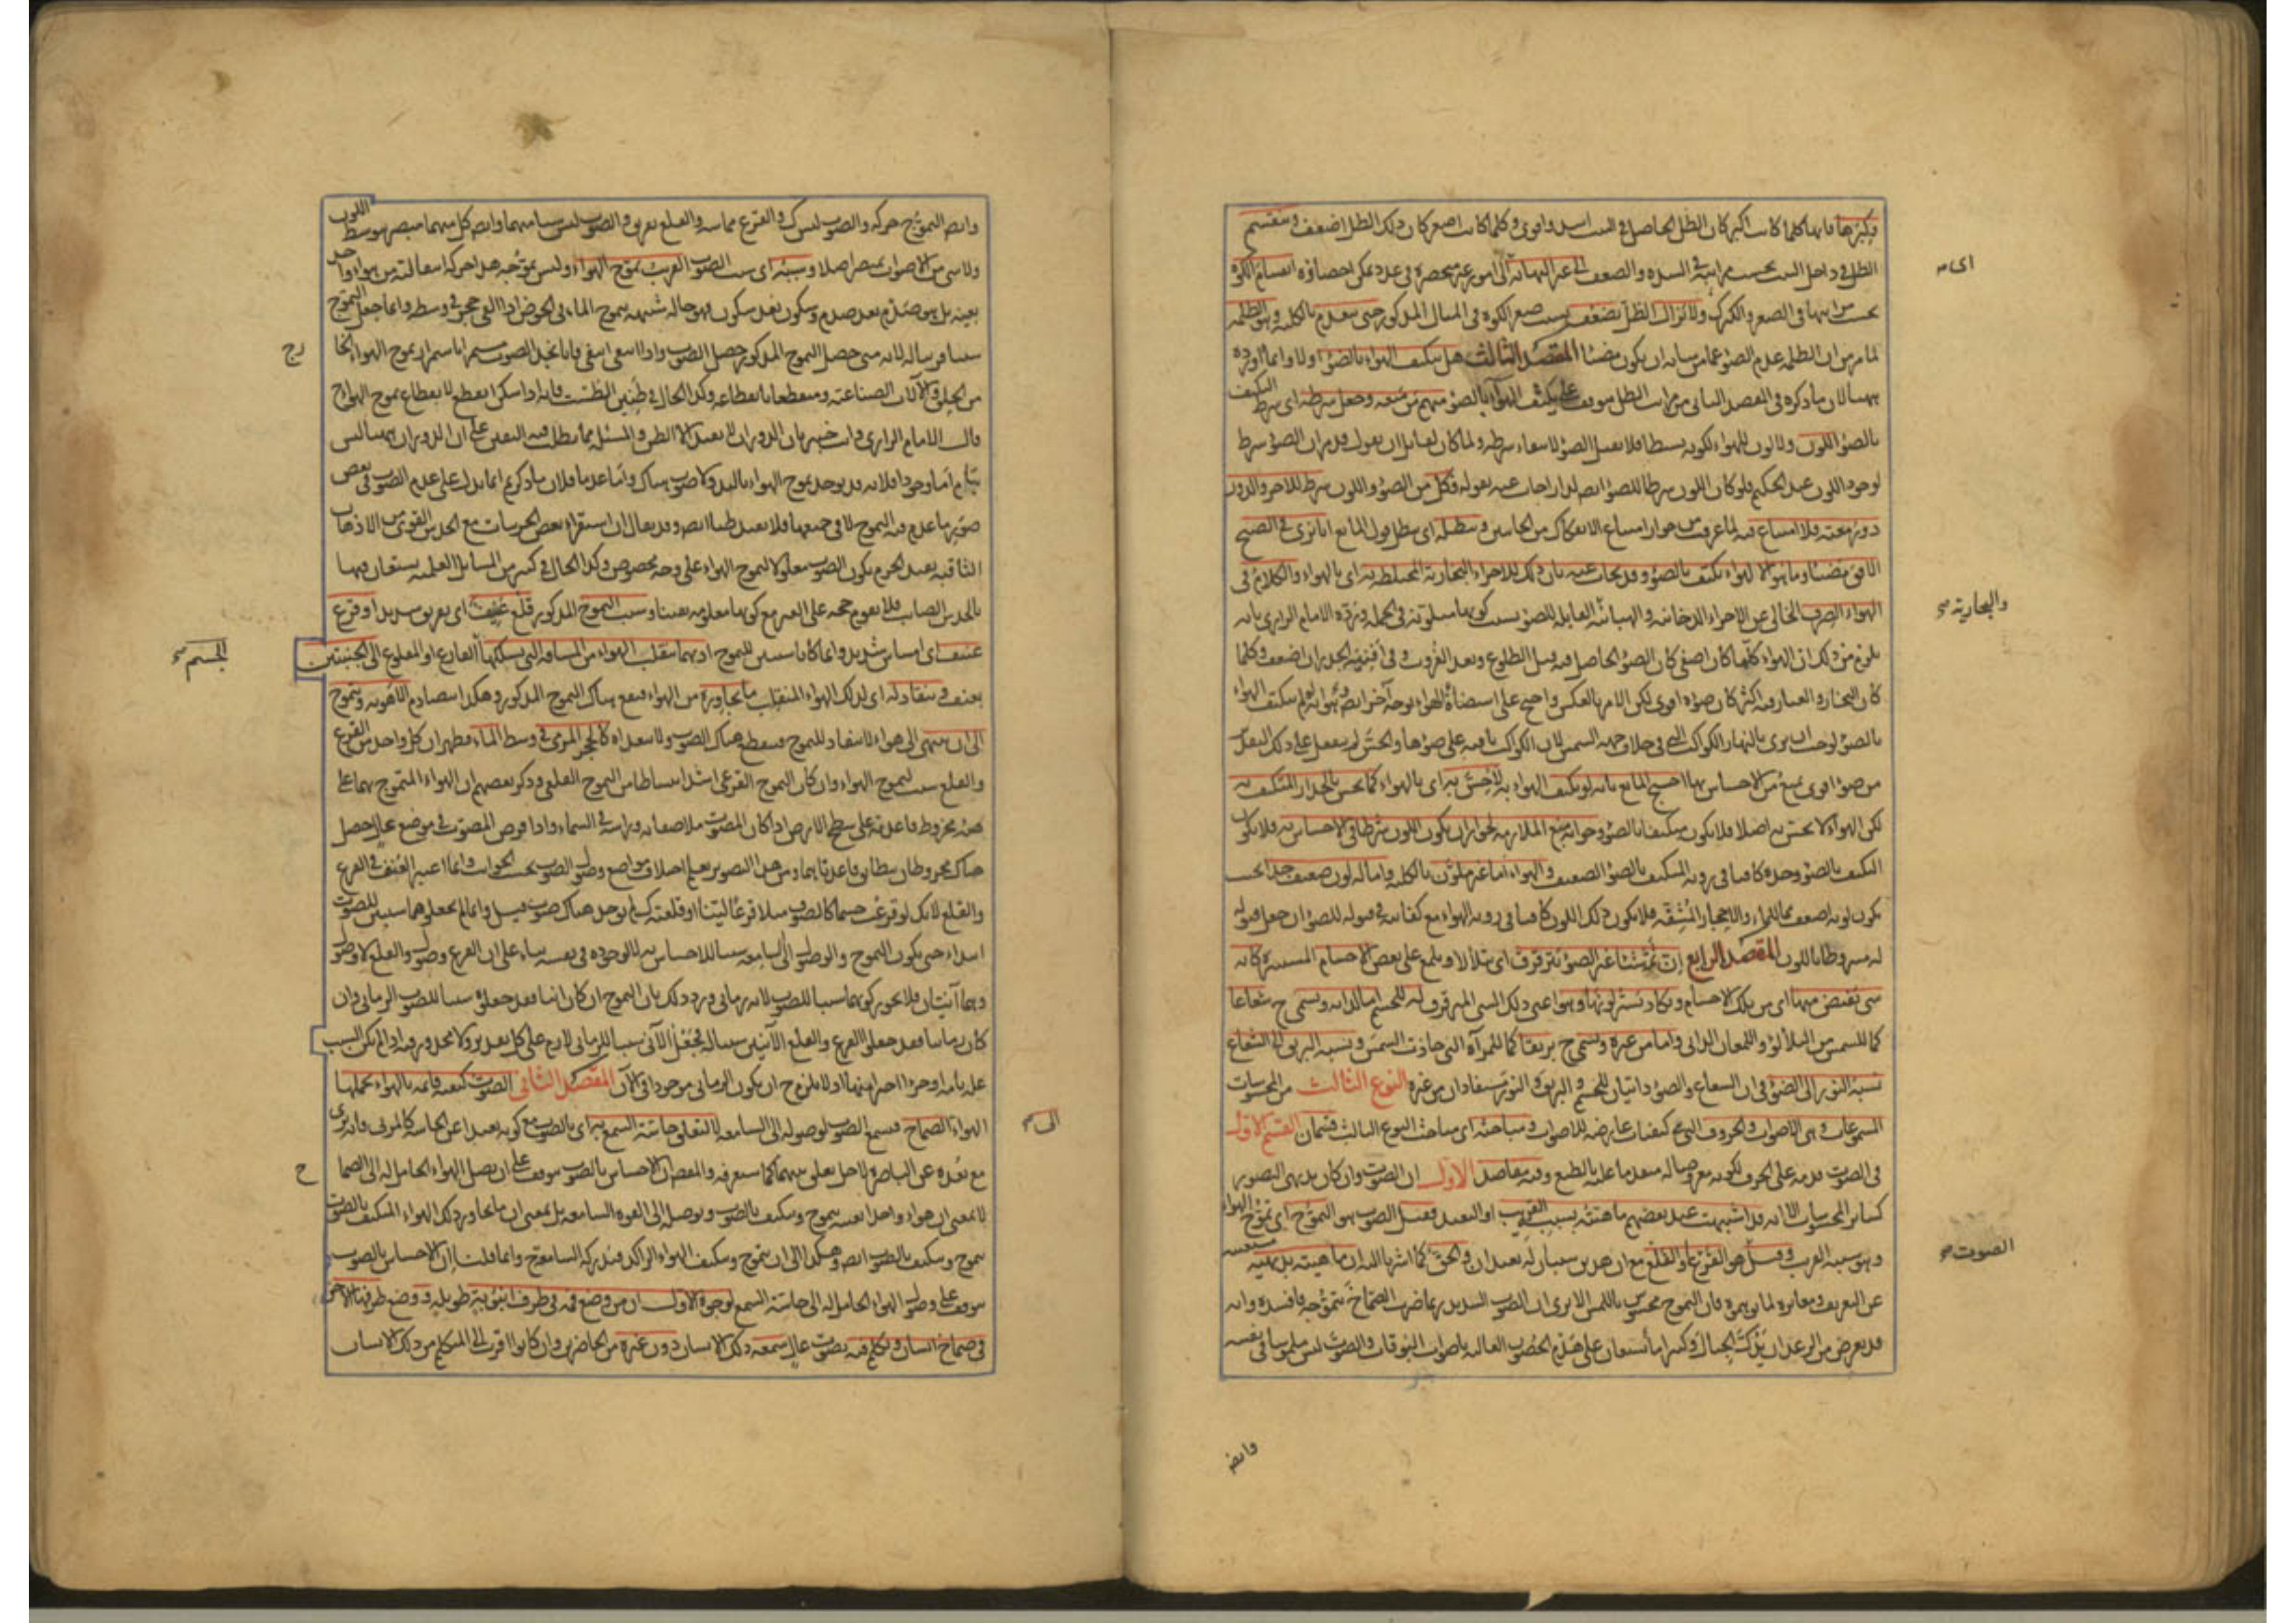 وكبرها فانها كلما كانت اكبر كان الظل الحاصل في البيت اشد واقوى وكلما كانت اصغر كان ذلك الظل اضعف وينقسم
الظل في داخل البيت بحسب مراتبه في الشدة والضعف الى غير النهاية الى امور غير منحصرة في عدد يمكن احصاؤه انقسام الكوة
بحسب مراتبها في الصغر والكبر ولا يزال الظل يضعف بسبب صغر الكوة في المثال المذكور حتى ينعدم بالكلية وهو الظلمة
لما مر من ان الظلمة عدم الضوء عما من شانه ان يكون مضيئا المقصد الثالث هل يتكيف الهواء بالضوء اولا وانما اورده
ههنا لان ما ذكره في المقصد الثاني من مراتب الظل موقوف على تكيف الهواء بالضوء منهم من منعه وجعل شرطه اى شرط التكيف
بالضوء اللون ولا لون للهواء لكونه بسيطا فلا يقبل الضوء لانتفاء شرطه ولما كان لقائل ان يقول قد مر ان الضوء شرط
لوجود اللون عند الحكيم فلو كان اللون شرطا للضوء ايضا لدار اجاب عنه بقوله فكل من الضوء واللون شرط للاخر والدور
دور معية فلا امتناع فيه لما عرفت من جواز امتناع الانفكاك من الجانبين ويبطله اى يبطل قول المانع انا نرى في الصبح
الافق مضيئا وما هو الا لهواء تكيف بالضوء وقد يجاب عنه بان ذلك للاجزاء البخارية المختلطة به اى بالهواء والكلام في
الهواء الصرف الخالي عن الاجزاء الدخانية والهبائية القابلة للضوء بسبب كونها متلونة في الجملة ورده الامام الرازي بانه
يلزم من ذلك ان الهواء كلما كان اصفى كان الضوء الحاصل فيه قبل الطلوع وبعد الغروب وفي افنية الجدران اضعف وكلما
كان البخار والغبار فيه اكثر كان ضوءه اقوى لكن الامر بالعكس واحتج على استضاءة الهواء بوجه آخر ايضا وهو انه لو لم يتكيف الهواء
بالضوء لوجب ان يرى بالنهار الكواكب التي في خلاف جهة الشمس لان الكواكب باقية على ضوئها والحس لم ينفعل على ذلك التقدير
من ضوء اقوى يمنع من الاحساس بها احتج المانع بانه لو تكيف الهواء به لاحس به اى بالهواء كما يحس بالجدار المتكيف به
لكن الهواء لا يحس به اصلا فلا يكون متكيفا بالضوء وجوابه منع الملازمة لجواز ان يكون اللون شرطا في الاحساس به فلا يكون
التكيف بالضوء وحده كافيا في رؤية المتكيف بالضوء الضعيف والهواء اما غير ملون بالكلية واما له لون ضعيف جدا بحيث
يكون لونه اضعف مما للماء والاحجار المشفة فلا يكون ذلك اللون كافيا في رؤية الهواء مع كفايته في قبوله للضوء ان جعل قبوله
له مشروطا باللون المقصد الرابع ان ثمة شيئا غير الضوء يترقرق اى يتلألأ ويلمع على بعض الاجسام المستنيرة كانه
شئ يفيض منها اى من تلك الاجسام ويكاد يستر لونها وهو اعنى ذلك الشئ المترقرق له للجسم اما لذاته ويسمى ح شعاعا
كما للشمس من التلألؤ واللمعان الذاتي واما من غيره ويسمى ح بريقا كما للمرآة التي حاذت الشمس ونسبة البريق الى الشعاع
نسبة النور الى الضوء في ان الشعاع والضوء ذاتيان للجسم والبريق والنور مستفادان من غيره النوع الثالث من المحسوسات
المسموعات وهي الاصوات والحروف التي هي كيفيات عارضة للاصوات ومباحثه اى مباحث النوع الثالث قسمان القسم الاول
في الصوت قدمه على الحرف لكونه معروضا له متقدما عليه بالطبع وفيه مقاصد الاول ان الصوت وان كان بديهي التصور
كسائر المحسوسات الا انه قد اشتبهت عند بعضهم ماهيته بسببه القريب او البعيد فقيل الصوت هو التموج اى تموج الهواء
وهو سببه القريب وقيل هو القرع او القلع مع ان هذين سببان له بعيدان والحق كما اشرنا اليه ان ماهيته بديهية مستغنية
عن التعريف ومغايرة لما توهموه فان التموج محسوس باللمس الا يرى ان الصوت الشديد ربما ضرب الصماخ بتموجه فافسده وانه
قد يعرض من الرعد ان يدك الجبال وكثيرا ما يستعان على هدم الحصون العالية باصوات البوقات والصوت ليس ملموسا في نفسه
والبخارية صح
الصوت صح
وايضا
وايضا التموج حركة والصوت ليس كذلك والقرع مماسة والقلع تفريق والصوت ليس شيئا منهما وايضا كل منهما مبصر بتوسط اللون
ولا شئ من الاصوات بمبصر اصلا وسببه اى سبب الصوت القريب تموج الهواء وليس تموجه هذا حركة انتقالية من هواء واحد
بعينه بل هو صدم بعد صدم وسكون بعد سكون فهو حالة شبيهة بتموج الماء في الحوض اذا القي حجر في وسطه وانما جعل التموج
سببا قريبا له لانه متى حصل التموج المذكور حصل الصوت واذا انتفى انتفى فانا نجد الصوت مستمرا باستمرار تموج الهواء الخارج
من الحلق والآلات الصناعية ومنقطعا بانقطاعه وكذا الحال في طنين الطشت فانه اذا سكن انقطع لانقطاع تموج الهواء ح
قال الامام الرازي وانت خبير بان الدوران لا يفيد الا الظن والمسئلة مما يطلب فيه اليقين على ان الدوران ههنا ليس
بتام اما وجودا فلانه قد يوجد تموج الهواء باليد ولا صوت هناك واما عدما فلان ما ذكرتم انما يدل على عدم الصوت في بعض
صور ما عدم فيه التموج لا في جميعها فلا يفيد ظنا ايضا وقد يقال ان استقراء بعض الجزئيات مع الحدس القوي من الاذهان
الثاقبة يفيد الجزم بكون الصوت معلولا لتموج الهواء على وجه مخصوص وكذا الحال في كثير من المسائل العلمية يستعان فيها
بالحدس الصائب فلا يقوم حجة على الغير مع كونها معلومة يقينا وسبب التموج المذكور قلع عنيف اى تفريق شديد او قرع
عنيف اى امساس شديد وانما كانا سببين للتموج اذ بهما ينقلب الهواء من المسافة التي يسلكها القارع او المقلوع الى الجنبتين
بعنف وينقاد له اى لذلك الهواء المنقلب ما يجاوره من الهواء فيقع هناك التموج المذكور وهكذا يتصادم الاهوية ويتموج
الى ان ينتهي الى هواء لا ينقاد للتموج فينقطع هناك الصوت ولا يتعداه كالحجر المرمي في وسط الماء فظهر ان كل واحد من القرع
والقلع سبب لتموج الهواء وان كان التموج القرعي اشد انبساطا من التموج القلعي وذكر بعضهم ان الهواء المتموج بهما على
هيئة مخروط قاعدته على سطح الارض اذا كان المصوت ملاصقا به وراسه في السماء واذا فرض المصوت في موضع عال حصل
هناك مخروطان تتطابق قاعدتاهما ومن هذا التصوير يعلم اختلاف مواضع وصول الصوت بحسب الجوانب وانما اعتبر العنف في القرع
والقلع لانك لو قرعت جسما كالصوف مثلا قرعا لينا او قلعته كذلك لم يوجد هناك صوت قيل وانما لم يجعلوهما سببين للصوت
ابتداء حتى يكون التموج والوصول الى السامعة سببا للاحساس به لا لوجوده في نفسه بناء على ان القرع وصول والقلع لا وصول
وهما آنيان فلا يجوز كونهما سببا للصوت لانه زماني ورد ذلك بان التموج ان كان آنيا فقد جعلوه سببا للصوت الزماني وان
كان زمانيا فقد جعلوا القرع والقلع الآنيين سببا له فجعل الآني سببا للزماني لازم على كل تقدير ولا محذور فيه اذا لم يكن السبب
علة تامة او جزءا اخيرا منها اذ لا يلزم ح ان يكون الزماني موجودا في الآن المقصد الثاني الصوت كيفية قائمة بالهواء يحملها
الهواء الى الصماخ فيسمع الصوت لوصوله الى السامعة لا لتعلق حاسة السمع به اى بالصوت مع كونه بعيدا عن الحاسة كالمرئي فانه يرى
مع بعده عن الباصرة لاجل تعلق بينهما كما ستعرفه والمقصد ان الاحساس بالصوت موقوف على ان يصل الهواء الحامل له الى الصماخ
لا بمعنى ان هواء واحدا بعينه يتموج ويتكيف بالصوت ويوصله الى القوة السامعة بل بمعنى ان ما يجاور ذلك الهواء المتكيف بالصوت
يتموج ويتكيف بالصوت ايضا وهكذا الى ان يتموج ويتكيف الهواء الراكد في فيدركه السامعة ح وانما قلنا ان الاحساس بالصوت
موقوف على وصول الهواء الحامل له الى حاسة السمع لوجوه الاول ان من وضع فمه في طرف انبوبة طويلة ووضع طرفها الآخر
في صماخ انسان وتكلم فيه بصوت عال سمعه ذلك الانسان دون غيره من الحاضرين وان كانوا اقرب الى المتكلم من ذلك الانسان
الجسم صح